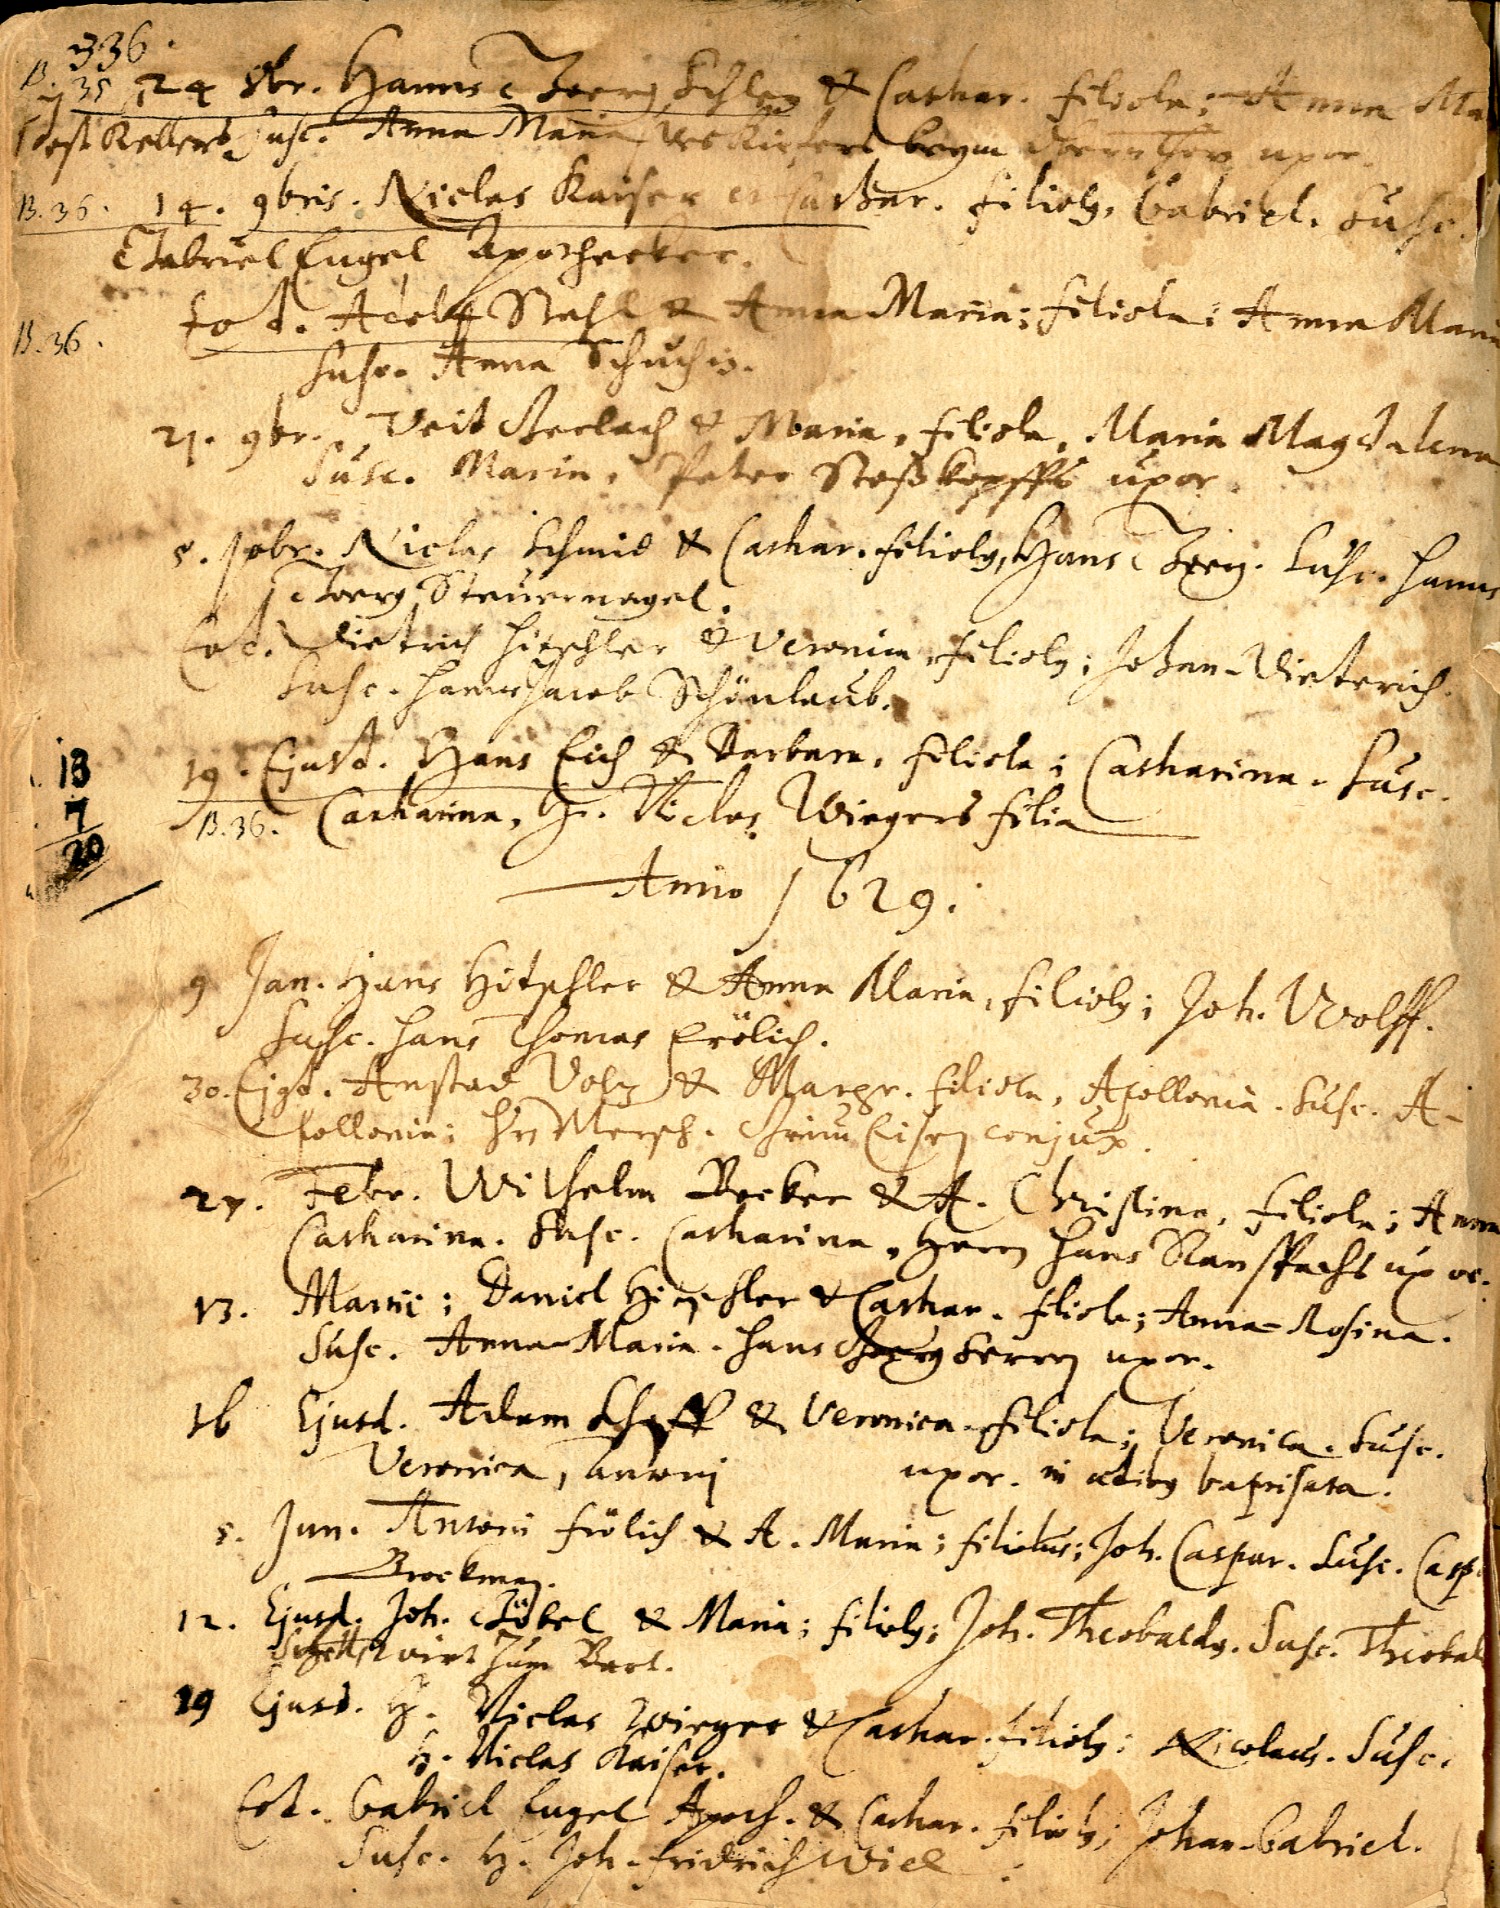 336.
B. 35 24 8br. Hanns Georg & Cathar. filiola; Anna Ma
Kellers Susc. Anna Maria beym uxor.
B. 36. 14. 9bris. Niclas Kaiser et Cathar. filiolg. Gabriel. Susc.
Gabriel Engel Apothecker.
B. 36. Eod. Adolff Stahl & Anna Maria; filiola: Anna Maria
Susc. Anna Schuchin.
21. 9br. Veit Gerlach & Maria, filiola, Maria Magdalena
Susc. Maria, Peter Stoßkopffs uxor.
5. Xbr. Niclas Schmid & Cathar. filiolg, Hans Georg. Susc. Hanns
Georg Steuernagel.
Eod. Dietrich Hitschler & Veronica, filiolg; Johan-Dieterich.
Susc. Hanns Jacob Schönlaub.
19. Ejusd. Hans Eich & Barbara, filiola; Catharina. Susc.
B. 36. Catharina, H. Niclas Wiegers filia
13
7
20
Anno 1629.
9 Jan. Hans Hitschler & Anna Maria, filiolg; Joh. Wolff.
Susc. Hans Thomas Frölich.
30. Ejsd. Anstad Volz & Margr. filiola, Apollonia. Susc. A-
pollonia; conjux.
27. Febr. Wilhelm Becker & A. Christina, filiola; Anna
Catharina. Susc. Catharina, Herrn Hans uxor.
13. Martii; Daniel Hitschler & Cathar. filiola; Anna-Rosina.
Susc. Anna-Maria. Hans Georg uxor.
16 Ejusd. Adam & Veronica. filiola; Veronica. Susc.
Veronica, Antonj uxor. in aedibg baptisata.
5. Jun. Antonii Frölich & A. Maria; filiolus; Joh. Caspar. Susc. Casp.
Brockman.
12. Ejusd. Joh. Göbel & Maria; filiolg; Joh. Theobaldg. Susc. Theobal
wirt zum
19 Ejusd. H. Niclas Wieger & Cathar. filiolg; Nicolaus. Susc.
H. Niclas Kaiser.
Eod. Gabriel Engel Apoth. & Cathar. filiolg; Johan-Gabriel.
Susc. H. Joh. Fridrich Wiel